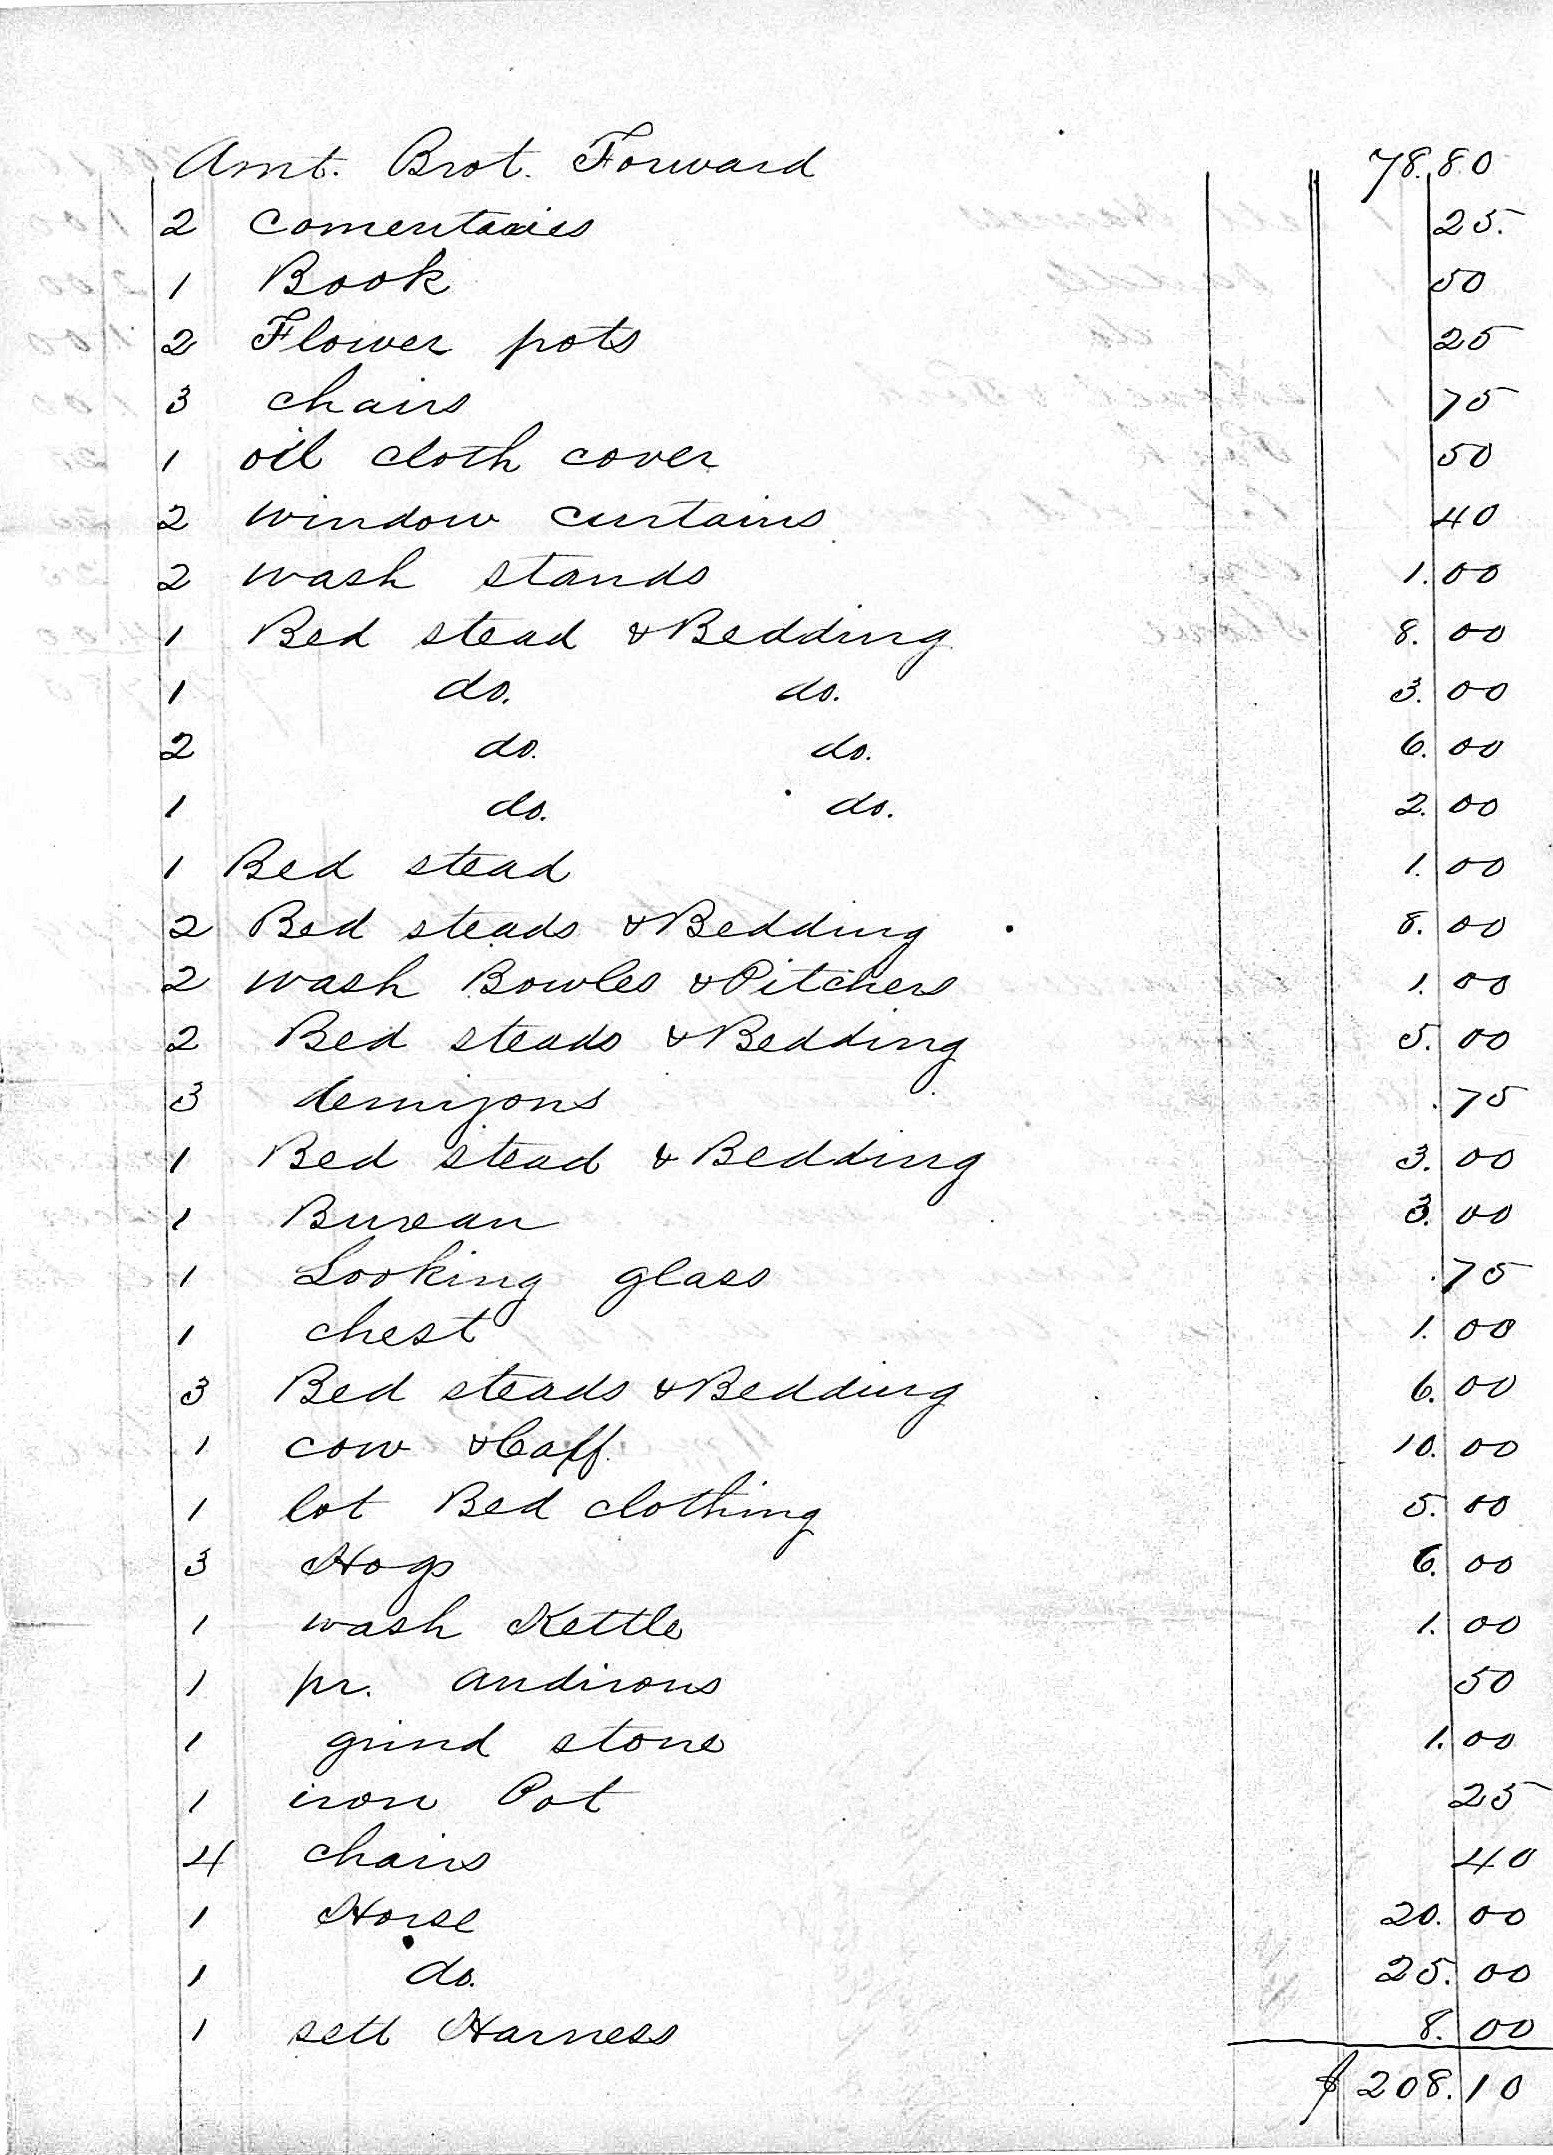 Amt. Brot. Forward 78.80
2 comentaries 25.
1 Book 50
2 Flower pots 25
3 chairs 75
1 oil cloth cover 50
2 window curtains 40
2 wash stands 1.00
1 Bed stead & Bedding 8.00
1 do. do. 3.00
2 do. do. 6.00
1 do. do. 2.00
1 Bed stead 1.00
2 Bed steads & Bedding 8.00
2 wash Bowles & Pitchers 1.00
2 Bed steads & Bedding 5.00
3 demijons .75
1 Bed stead & Bedding 3.00
1 Bureau 3.00
1 Looking glass .75
1 chest 1.00
3 Bed steads & Bedding 6.00
1 cow & Caff. 10.00
1 lot Bed clothing 5.00
3 Hogs 6.00
1 wash Kettle 1.00
1 pr. andirons 50
1 grind stone 1.00
1 iron Pot 25
4 chairs 40
1 Horse 20.00
1 do. 25.00
1 sett Harness 8.00
$208.10